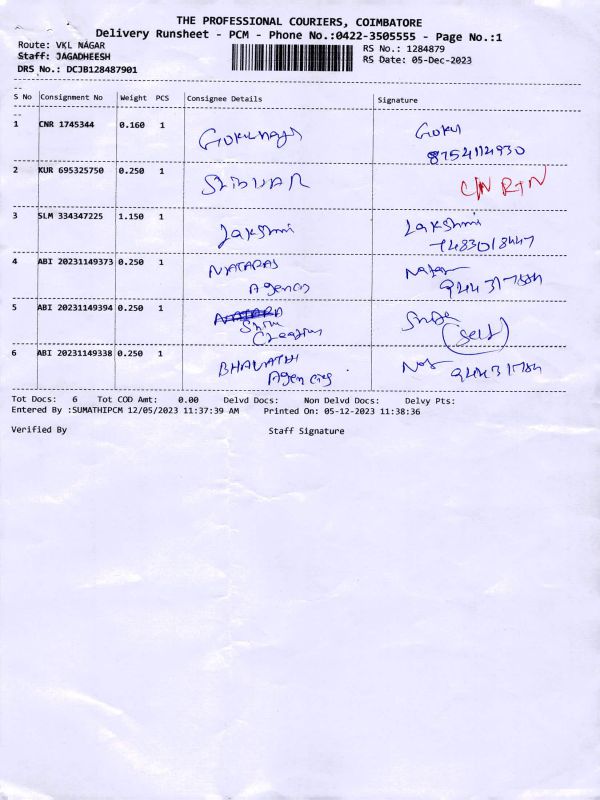 THE PROFESSIONAL COURIERS, COIMBATORE
Delivery Runsheet - PCM - Phone No.:0422-3505555 - Page No.:1
Route: VKL NAGAR RS No.: 1284879
Staff: JAGADHEESH RS Date: 05-Dec-2023
DRS No.: DCJB128487901
S No Consignment No Weight PCS Consignee Details Signature
1 CNR 1745344 0.160 1 Gokul
2 KUR 695325750 0.250 1 C/N RTN
3 SLM 334347225 1.150 1 Lakshmi Lakshmi
4 ABI 20231149373 0.250 1
Agencies
5 ABI 20231149394 0.250 1
(Self)
6 ABI 20231149338 0.250 1
Agencies
Tot Docs: 6 Tot COD Amt: 0.00 Delvd Docs: Non Delvd Docs: Delvy Pts:
Entered By :SUMATHIPCM 12/05/2023 11:37:39 AM Printed On: 05-12-2023 11:38:36
Verified By Staff Signature